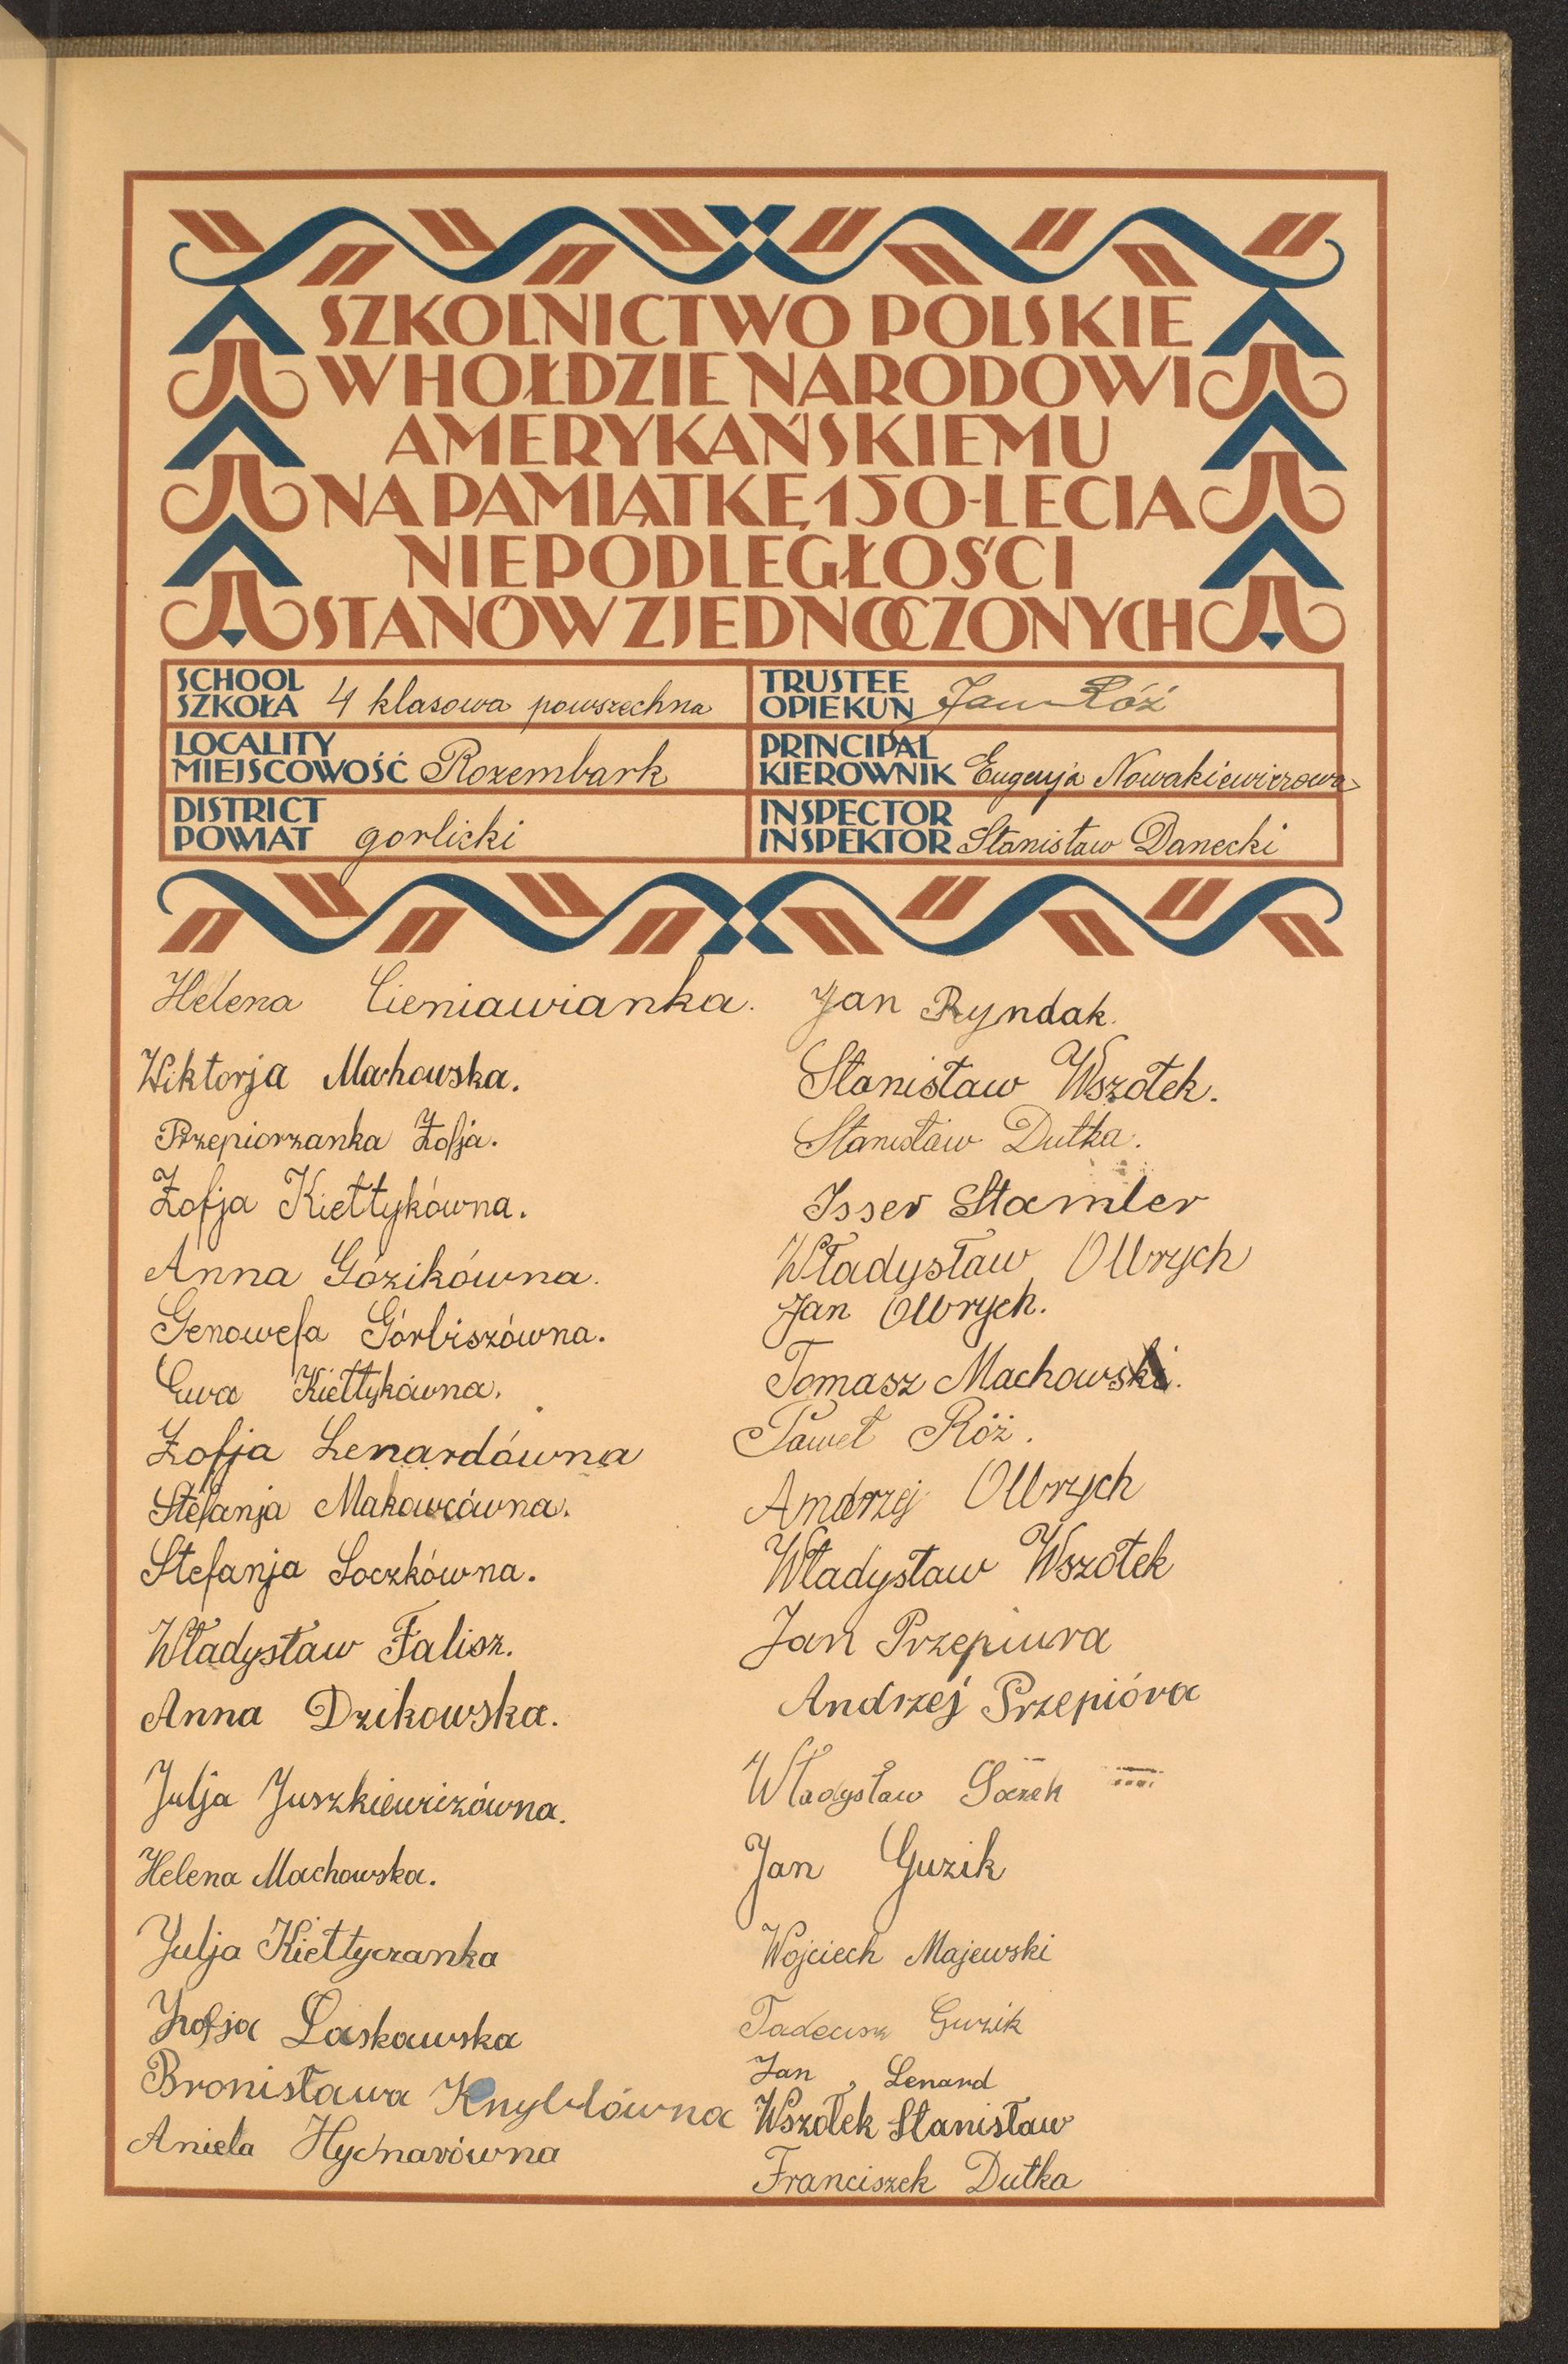 SZKOLNICTWO POLSKIE
W HOŁDZIE NARODOWI
AMERYKAŃSKIEMU
NA PAMIĄTKĘ 150-LECIA
NIEPODLEGŁOŚCI
STANÓW ZJEDNOCZONYCH
SCHOOL
SZKOŁA 4 klasowa powszechna
TRUSTEE
OPIEKUN Jan Róż
LOCALITY
MIEJSCOWOŚĆ Rozembark
PRINCIPAL
KIEROWNIK Eugenja Nowakiewiczowa
DISTRICT
POWIAT gorlicki
INSPECTOR
INSPEKTOR Stanisław Danecki
Helena Cieniawianka.
Wiktorja Machowska.
Przepiorzanka Zofja.
Zofja Kiełtykówna.
Anna Gózikówna.
Genowefa Górbiszówna.
Ewa Kiełtykówna.
Zofja Lenardówna
Stefanja Makowcówna.
Stefanja Soczkówna.
Władysław Falisz.
Anna Dzikowska.
Julja Juszkiewiczówna.
Helena Machowska.
Julja Kiełtyczanka
Zofja Laskowska
Bronisława Knyblówna
Aniela Hycnarówna
Jan Ryndak.
Stanisław Wszołek.
Stanisław Dutka.
Isser Stamler
Władysław Olbrych
Jan Olbrych.
Tomasz Machowski.
Paweł Róż.
Andrzej Olbrych
Władysław Wszołek
Jan Przepiura
Andrzej Przepióra
Władysław Soczek
Jan Guzik
Wojciech Majewski
Tadeusz Guzik
Jan Lenard
Wszołek Stanisław
Franciszek Dutka